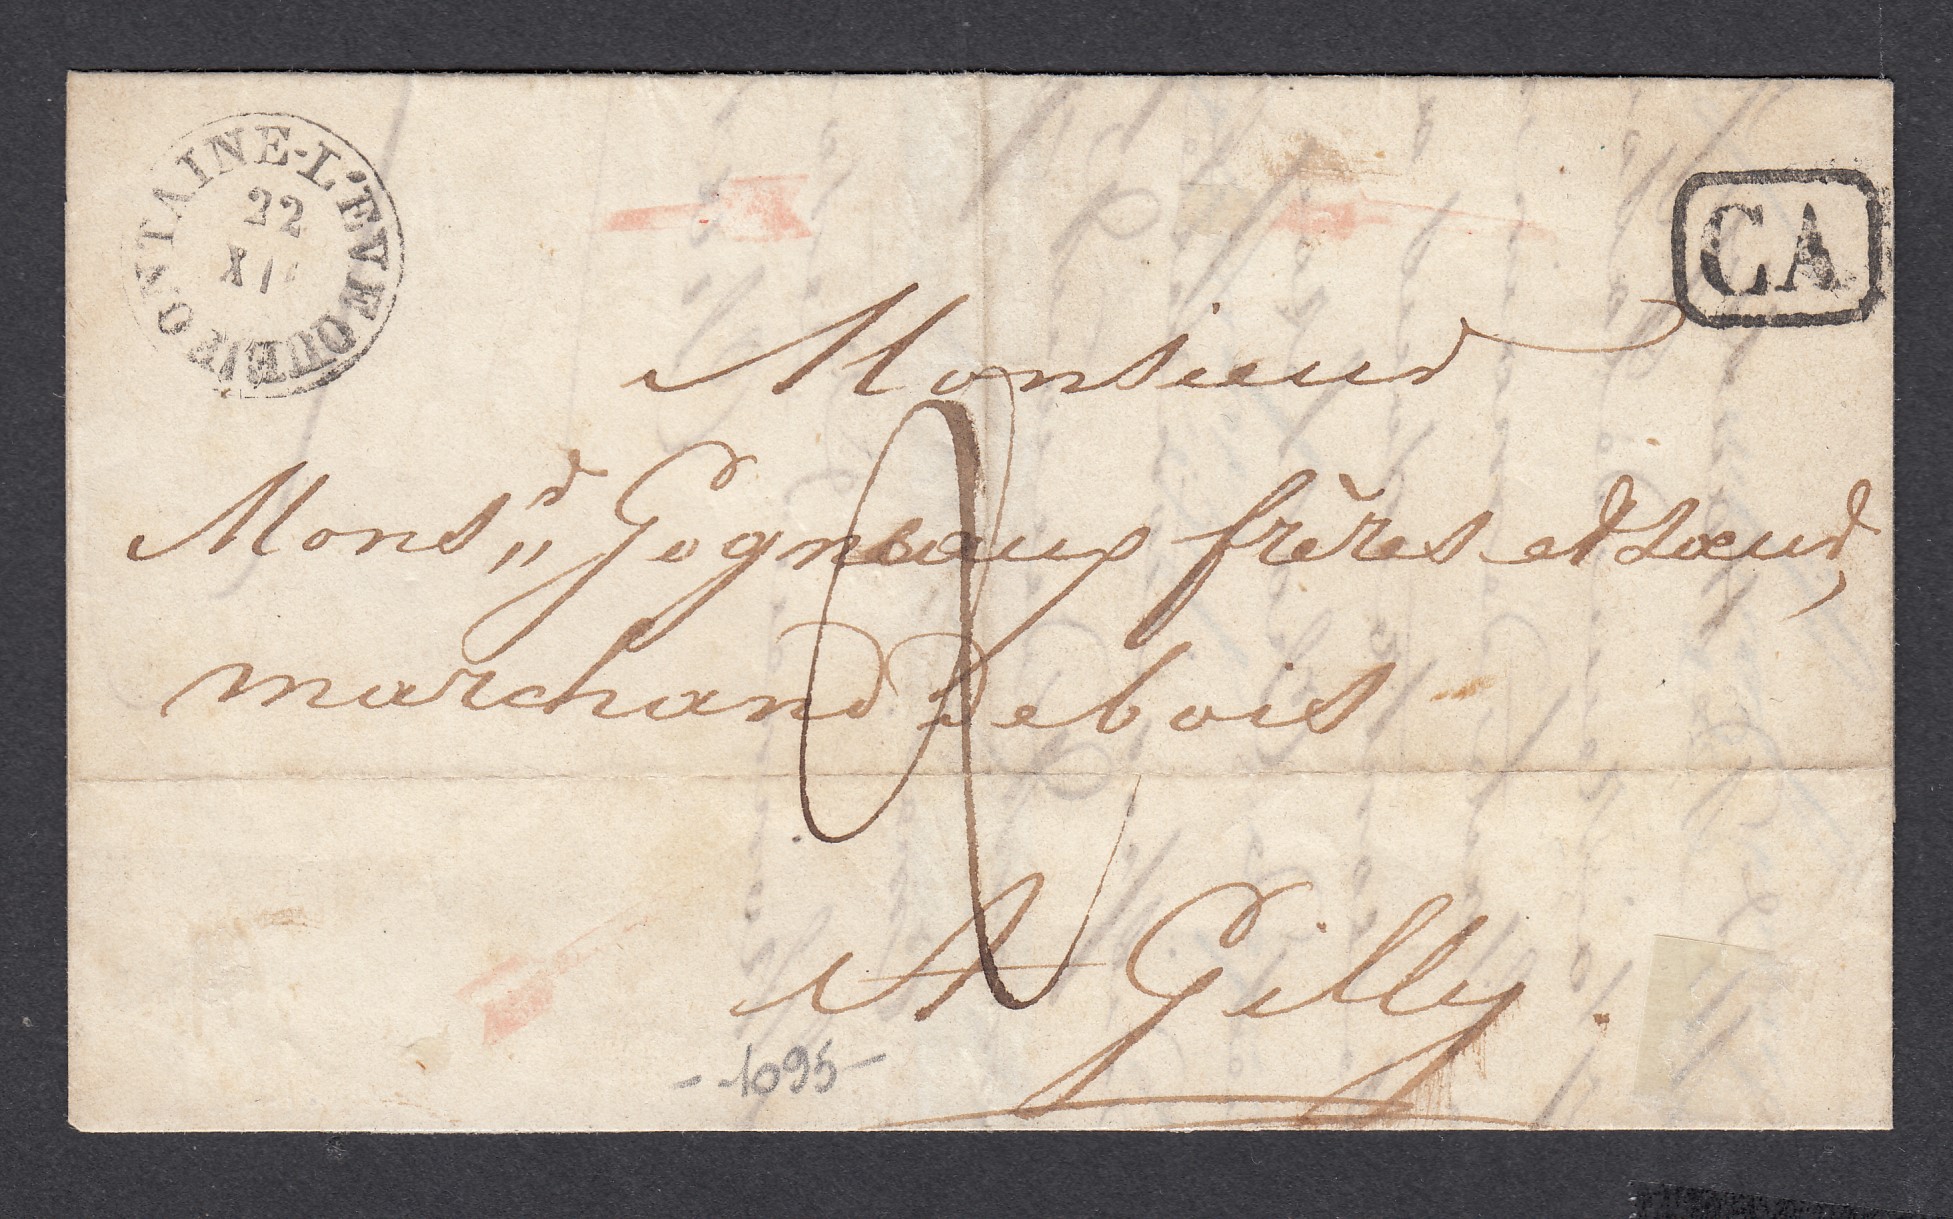 FONTAINE-L'EVEQUE
22
XII
CA
Monsieur
Monsr Gogneaux frères et soeur,
marchand de bois
2
A Gilly.
- 1095 -